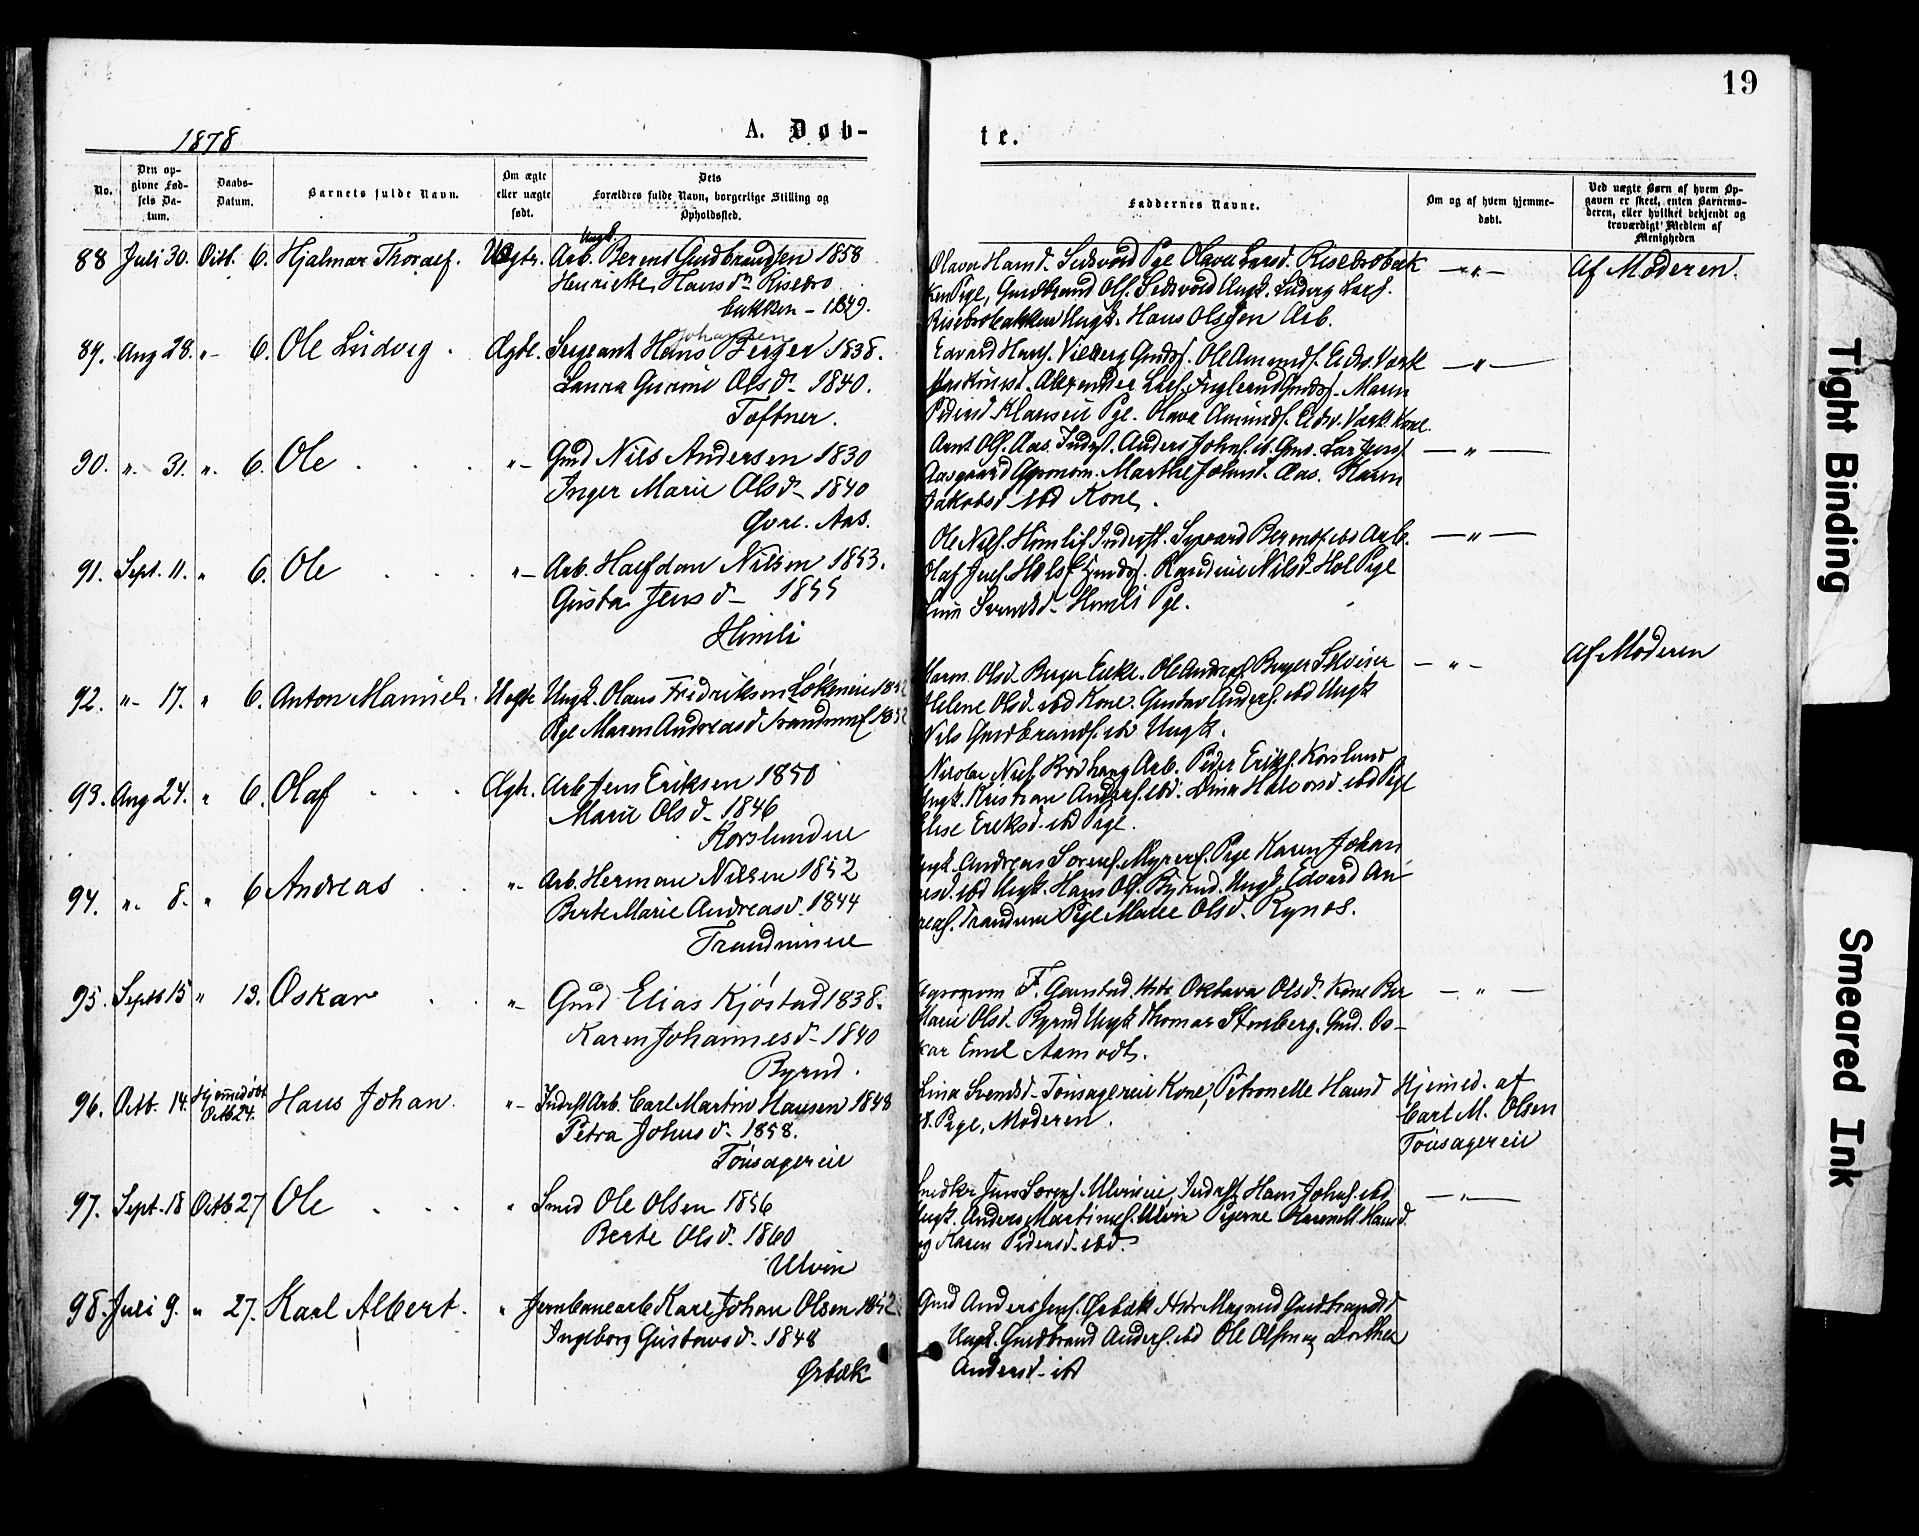 19
1878
A. Døb-
te.
No.
Den op-
givne Fød-
sels Da-
tum.
Daabs-
Datum.
Barnets fulde Navn.
Om ægte
eller uægte
født.
Dets
Forældres fulde Navn, borgerlige Stilling og
Opholdssted.
Faddernes Navne.
Om og af hvem hjemme-
døbt.
Ved uægte Børn af hvem Op-
gaven er skeet, enten Barnemo-
deren, eller hvilket bekjendt og
troværdigt Medlem af
Menigheden
88 Juli 30. Octb. 6. Hjalmar Thoralf. Uægte. Ungk.
Arb. Bernt Gudbrandsen 1858
Henriette Hansdr. Risebro
bakken - 1849.
Olava Hansd. Pge Olava Larsd. Risebrobak
ken Pge, Gudbrand Ols. Ungk. Ludvig Lars.
Risebrobakken Ungk. Hans Olsen Arb.
— " —
Af Moderen.
89. Aug 28. " 6. Ole Ludvig. Ægte. Johansen
Sergeant Hans Berger 1838.
Laura Gurine Olsdr. 1840.
Toftner.
Edvard Hans. Gmds. Ole Amunds. Eidsv. Værk
Alexander Lars. Maren
Pedersd. Klausen Pge. Olava Amunds. Eidsv. Værk Kone.
— " —
90. " 31. " 6. Ole " Gmd Nils Andersen 1830
Inger Marie Olsdr. 1840
Øvre. Aas.
Arnt Ols. Aas. Inderst. Anders Johns. Gmd. Lars Jens.
Aasgaard Agronom. Marthe Johnsd. Aas. Karen
Jakobsd ibd Kone.
— " —
91. Sept. 11. " 6. Ole " Arb. Halfdan Nilsen 1853.
Gusta Jensd. 1855
Himli
Ole Nils. Himlif Inderst. Syvaard Bernts. ibd Arb.
Olaf Jens. Hols. Gmds. Randine Nilsd. Hol Pge
Lina Svendsd. Himli Pge.
— " —
92. " 17. " 6. Anton Manuel. Uægte Ungk. Olaus Fredriksen Løkeneie 1852
Pge Maren Andreasd 1852
Maren Olsd. Berger Enke. Ole Anders. Berger
Helene Olsd. ibd Kone. Gustav Anders. ibd Ungk
Nils Gudbrands. ibd Ungk.
— " —
Af Moderen
93. Aug 24. " 6. Olaf Ægte. Arb Jens Eriksen 1850
Marie Olsd. 1846
Korslundeie
Nikolai Niels. Brodhaug Arb. Peder Eriks. Korslund
Ungk. Kristian Anders. ibd. Dina Halvorsd. ibd Pge
Elise Eriksd. ibd Pge.
94. " 8. " 6 Andreas " Arb. Herman Nilsen 1852
Berte Marie Andreasd. 1844
Trandumeie
Ungk. Andreas Sorens. Pge Karen Johan
nesd. ibd Ungk. Hans Ols. Byrud. Ungk. Edvard An-
dreas. Trandum Pge Marie Olsd. Rynes.
95. Septb 15 " 13. Oskar " Gmd Elias Kjøstad 1838.
Karen Johannesd. 1840
Byrud.
Agronom F. Oktava Olsd. Kone Ber
Marie Olsd. Byrud Ungk. Thomas Stenberg. Gmd. Os-
kar Emil Aamodt.
— " —
96. Octb. 14. Hjemmedøbt
Octb 24. Hans Johan. " Inderst Arb. Carl Martin Hansen 1848
Petra Johnsd. 1858.
Tønsagereie
Lina Svendsd. Tønsagereie Kone, Petronelle Hansd
Pge, Moderen.
Hjemed. af
Carl M. Olsen
Tønsagereie
97. Sept. 18 Octb 27 Ole " Smed Ole Olsen 1856
Berte Olsd. 1860
Ulvin
Snedker Jens Sorens. Ulvineie, Inderst Hans Johns. ibd
Ungk. Anders Martins. Ulvin Pigerne Karenell Hansd.
og Karen Pedersd. ibd.
— " —
98. Juli 9. " 27. Karl Albert. " Jernbanearb Karl Johan Olsen 1852
Ingeborg Gustavsd. 1848
Ørbæk
Gmd Anders Jens. Ørbæk Gudbrandsd
Ungk. Gudbrand Anders. ibd Ole Olsen og Dorthea
Andersd. ibd
Tight Binding
Smeared Ink